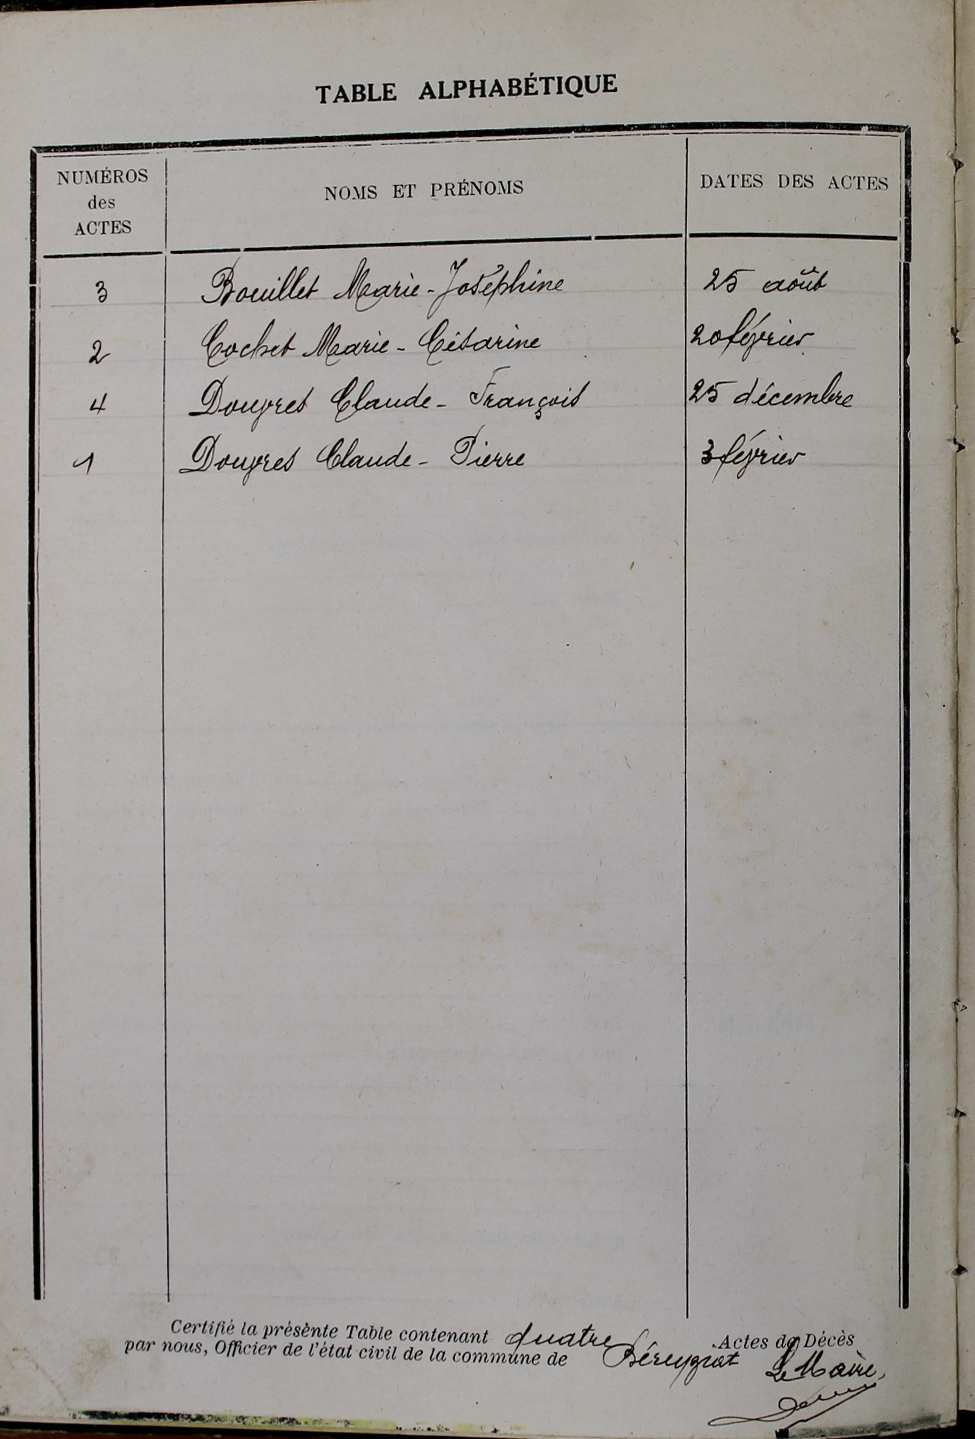 TABLE ALPHABÉTIQUE
NUMÉROS des ACTES NOMS ET PRÉNOMS DATES DES ACTES
3 Bouillet Marie-Joséphine 25 août
2 Cochet Marie-Césarine 20 février
4 Douvres Claude-François 25 décembre
1 Douvres Claude-Pierre 3 février
Certifié la présente Table contenant quatre Actes de Décès
par nous, Officier de l'état civil de la commune de Béreyziat
Le Maire,